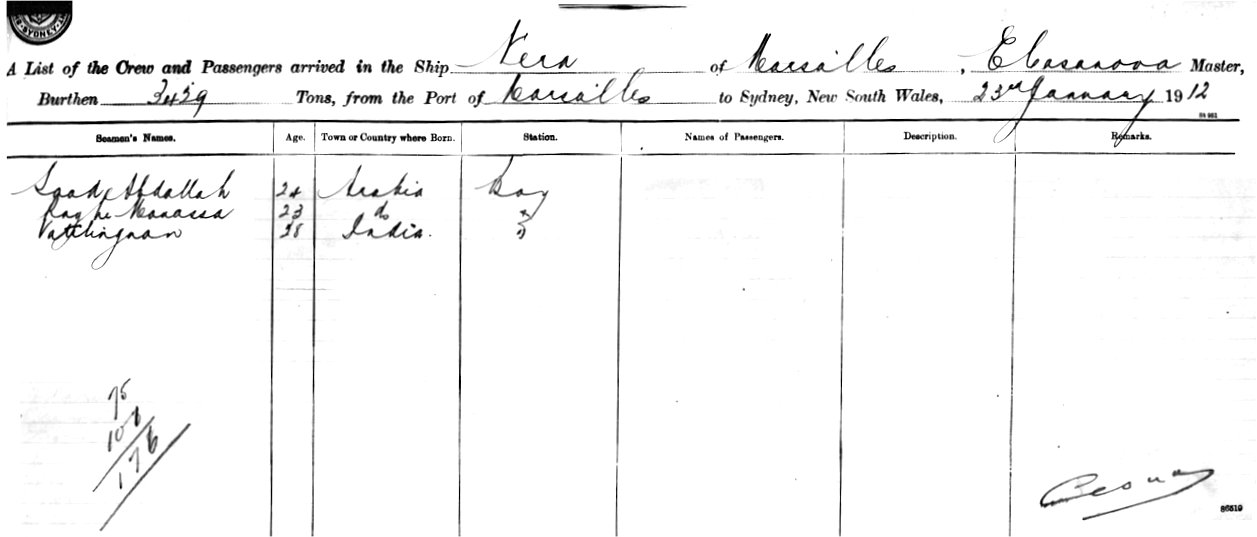 SYDNEY
A List of the Crew and Passengers arrived in the Ship Nera of Marsailles, E Casanova Master,
Burthen 3429 Tons, from the Port of Marsailles to Sydney, New South Wales, 23rd January 1912
Seamen's Names. Age. Town or Country where Born. Station. Names of Passengers. Description. Remarks.
Saad Abdallah 24 Arabia Boy
Manassa 23 do
38 India.
75
101
176
86519